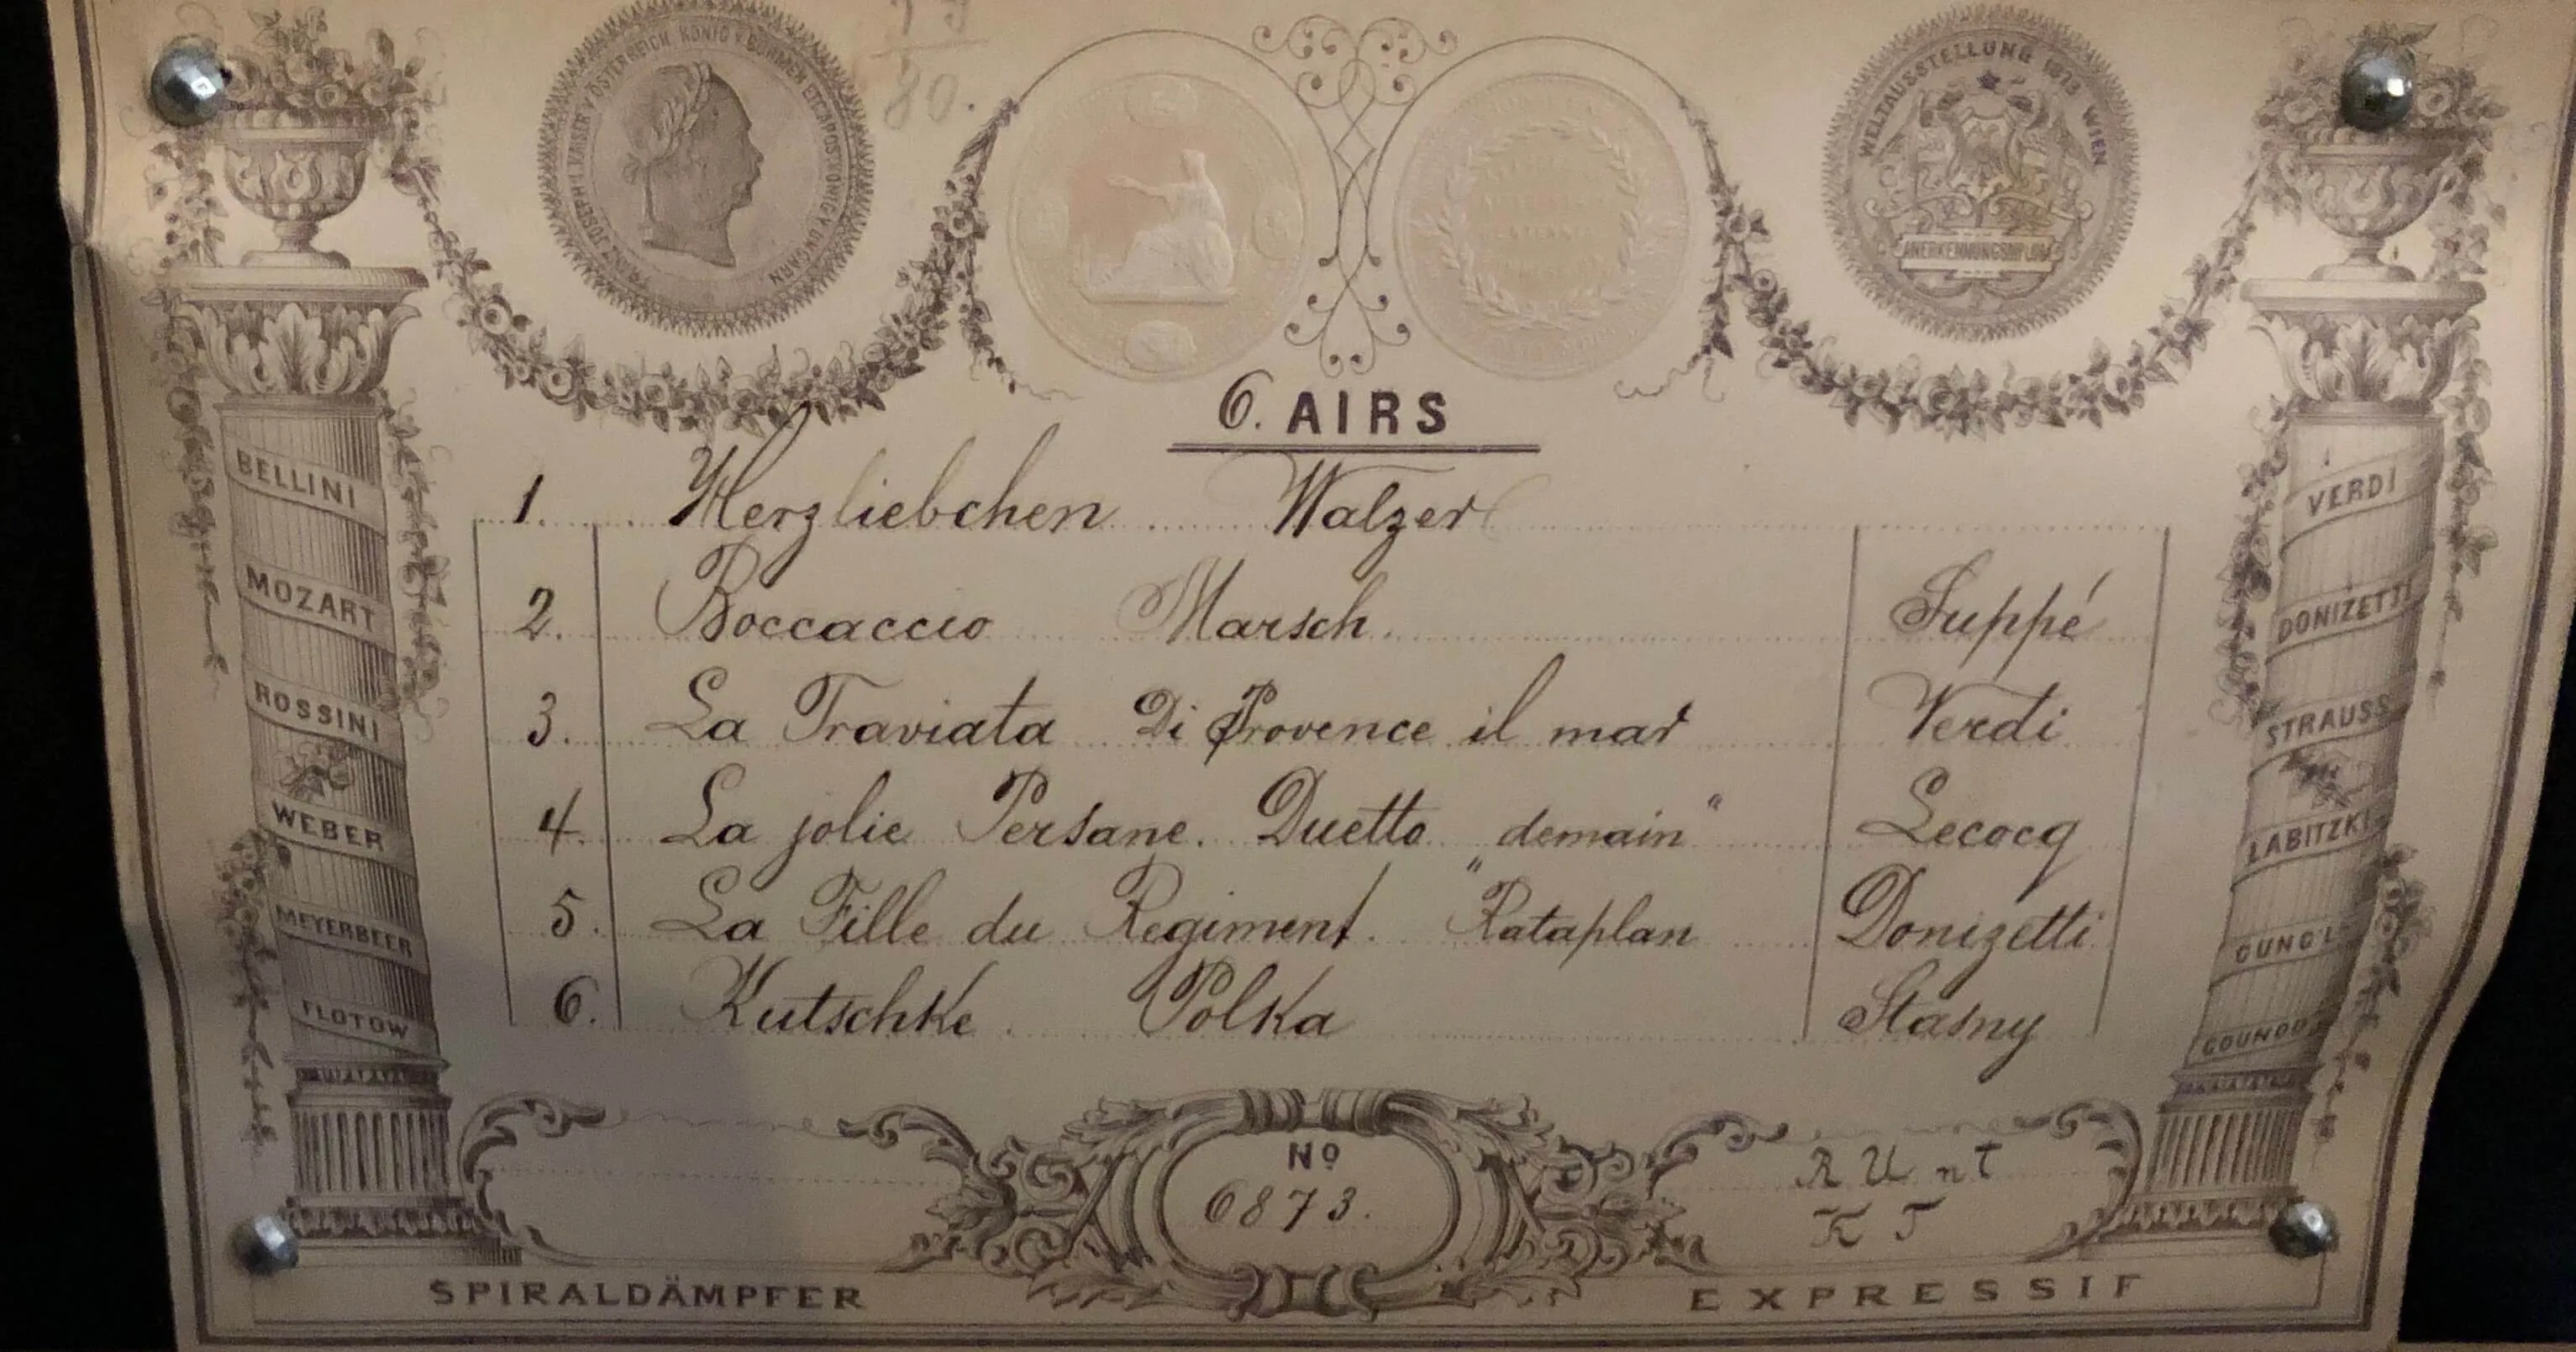 FRANZ JOSEPH I. KAISER v. ÖSTERREICH, KÖNIG v. BÖHMEN ETC. APOST. KÖNIG v. UNGARN
80.
WELTAUSSTELLUNG 1873 WIEN
ANERKENNUNGSDIPLOM
6. AIRS
1. Herzliebchen Walzer
2. Boccaccio Marsch. Suppé
3. La Traviata Di Provence il mar Verdi
4. La jolie Persane. Duetto "demain" Lecocq
5. La Fille du Regiment. "Rataplan Donizetti
6. Kutschke Polka Stasny
BELLINI
MOZART
ROSSINI
WEBER
MEYERBEER
FLOTOW
VERDI
DONIZETTI
STRAUSS
LABITZKI
GUNG'L
GOUNOD
No
6873.
R U nt
K T
SPIRALDÄMPFER
EXPRESSIF